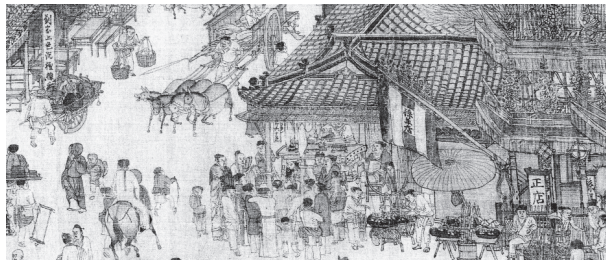 劉家上色沉檀揀香
正店